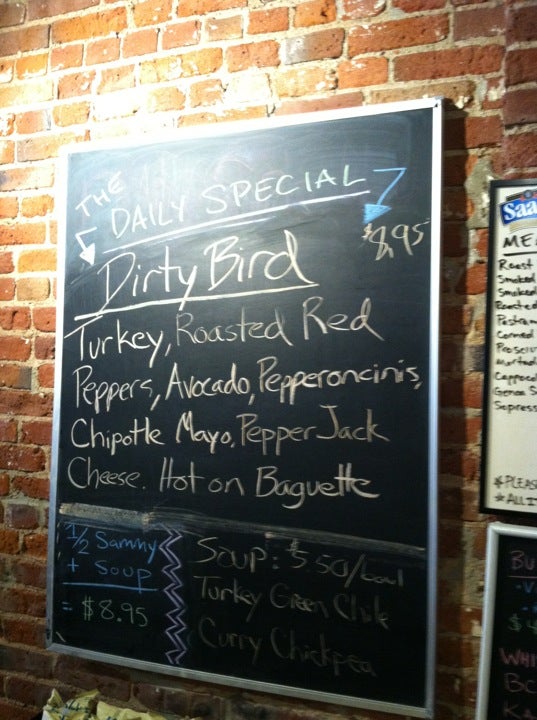 THE
DAILY SPECIAL
$8.95
Dirty Bird
Turkey, Roasted Red
Peppers, Avocado, Pepperoncinis,
Chipotle Mayo, Pepper Jack
Cheese. Hot on Baguette
1/2 Sammy
+ Soup
= $8.95
Soup: $5.50/bowl
Turkey Green Chile
Curry Chickpea
Saa
ME
Roast
Smoked
Smoked
Roasted
Pastra
Corned
Prosciu
Mortad
Capoco
Genoa S
Sopress
*PLEAS
*ALL I
BU
WHI
BC
KA